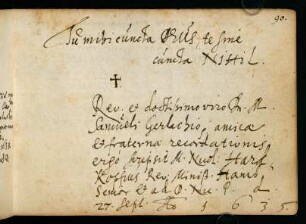 90.
Tu mihi cuncta DEUS, te sine
cuncta NIHIL.
Rev. et doctissimo viro Dn. M.
Samueli Gerlachio, amicæ
et fraternæ recordationis
ergo scripsit M. Nicol. Hard
Kopfius Rev. Minist. Hamb.
Senior et ad D. Nic. P.
27. Sept. Ao 1635